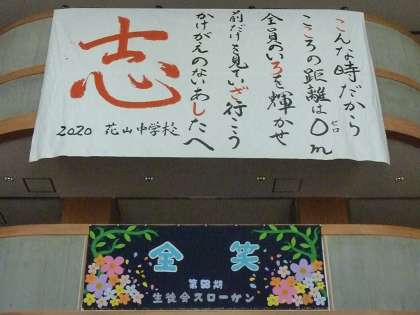 こんな時だから
こころの距離は0m
ゼロ
全員のいろを輝かせ
前だけを見ていざ行こう
かけがえのないあしたへ
志
2020 花山中学校
全笑
第53期
生徒会スローガン